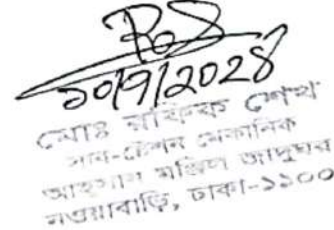 ১০/9/2028
মোঃ রফিক শেখ
সাব-স্টেশন মেকানিক
আহসান মঞ্জিল জাদুঘর
নওয়াবাড়ি, ঢাকা-১১০০